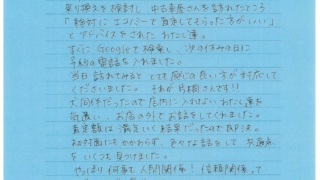 乗り換えを検討し 中古車屋さんを訪れたところ
「絶対に エコノミーで 査定してもらった方が いい」
と アドバイスをされた わたし達。
すぐに Googleで 検索し、次の休みの日に
予約の電話を入れました。
当日 訪れてみると とても感じの良い方が 対応して
くださいました。それが さんです!!
犬 同伴だったので 店内に 入れない わたし達を
気遣い、お店の外で お話をしてくれました。
査定額は 満足いく 結果だったので 即決。
初対面にも かかわらず、色々な話をして 共通点
を いくつも 見つけました。
やっぱり 何事も 人間関係! 信頼関係って